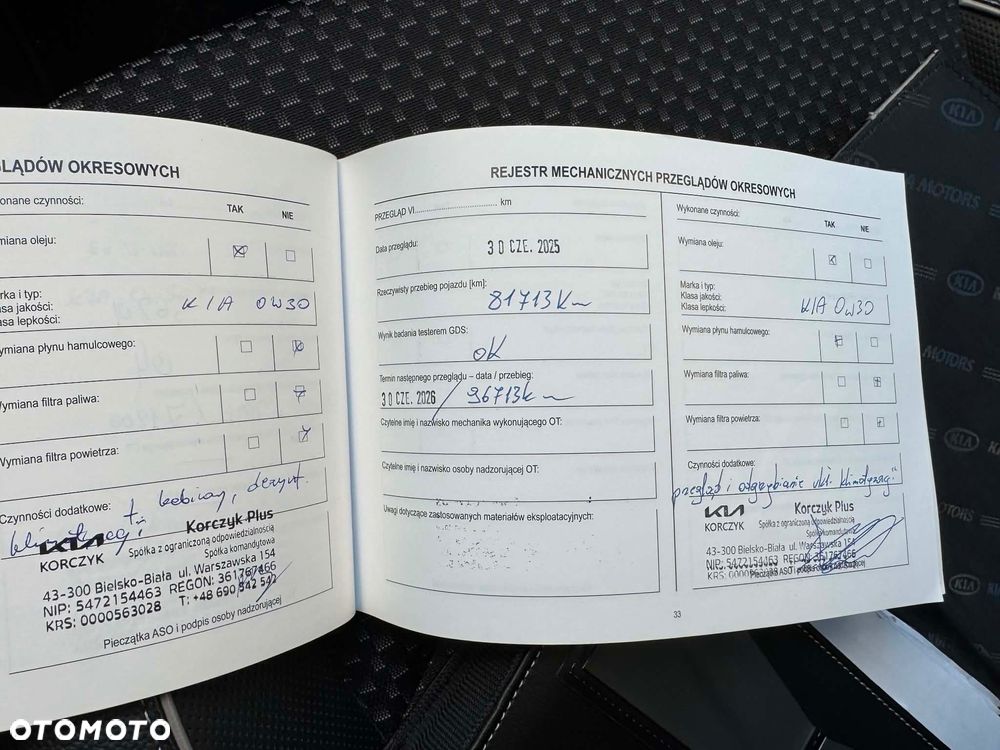 GLĄDÓW OKRESOWYCH
onane czynności:
TAK NIE
ymiana oleju:
rka i typ:
asa jakości:
asa lepkości:
KIA 0W30
ymiana płynu hamulcowego:
ymiana filtra paliwa:
Wymiana filtra powietrza:
Czynności dodatkowe: f. kabinowy, dezynf.
klimatyzacji
KIA Korczyk Plus
KORCZYK Spółka z ograniczoną odpowiedzialnością
Spółka komandytowa
43-300 Bielsko-Biała ul. Warszawska 154
NIP: 5472154463 REGON: 361767466
KRS: 0000563028 T: +48 690 542 542
Pieczątka ASO i podpis osoby nadzorującej
REJESTR MECHANICZNYCH PRZEGLĄDÓW OKRESOWYCH
PRZEGLĄD VI.................................. km
Data przeglądu: 30 CZE. 2025
Rzeczywisty przebieg pojazdu [km]:
81713 km
Wynik badania testerem GDS:
OK
Termin następnego przeglądu – data / przebieg:
30 CZE. 2026 / 96713 km
Czytelne imię i nazwisko mechanika wykonującego OT:
Czytelne imię i nazwisko osoby nadzorującej OT:
Uwagi dotyczące zastosowanych materiałów eksploatacyjnych:
33
Wykonane czynności:
TAK NIE
Wymiana oleju:
Marka i typ:
Klasa jakości:
Klasa lepkości:
KIA 0W30
Wymiana płynu hamulcowego:
Wymiana filtra paliwa:
Wymiana filtra powietrza:
Czynności dodatkowe:
przegląd i odgrzybianie ukł. klimatyzacji"
KIA Korczyk Plus
KORCZYK Spółka z ograniczoną odpowiedzialnością
Spółka komandytowa
43-300 Bielsko-Biała ul. Warszawska 154
NIP: 5472154463 REGON: 361767466
KRS: 0000563028
Pieczątka ASO i podpis osoby nadzorującej
KIA
KIA MOTORS
KIA
MOTORS
KIA
KIA
OTOMOTO